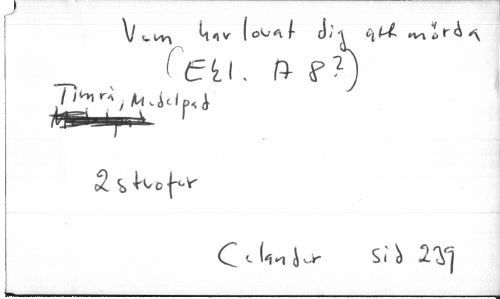 Vem har lovat dig att mörda
(Ekl. A 8?)
Timrå, Medelpad
2 strofer
Celander sid 239